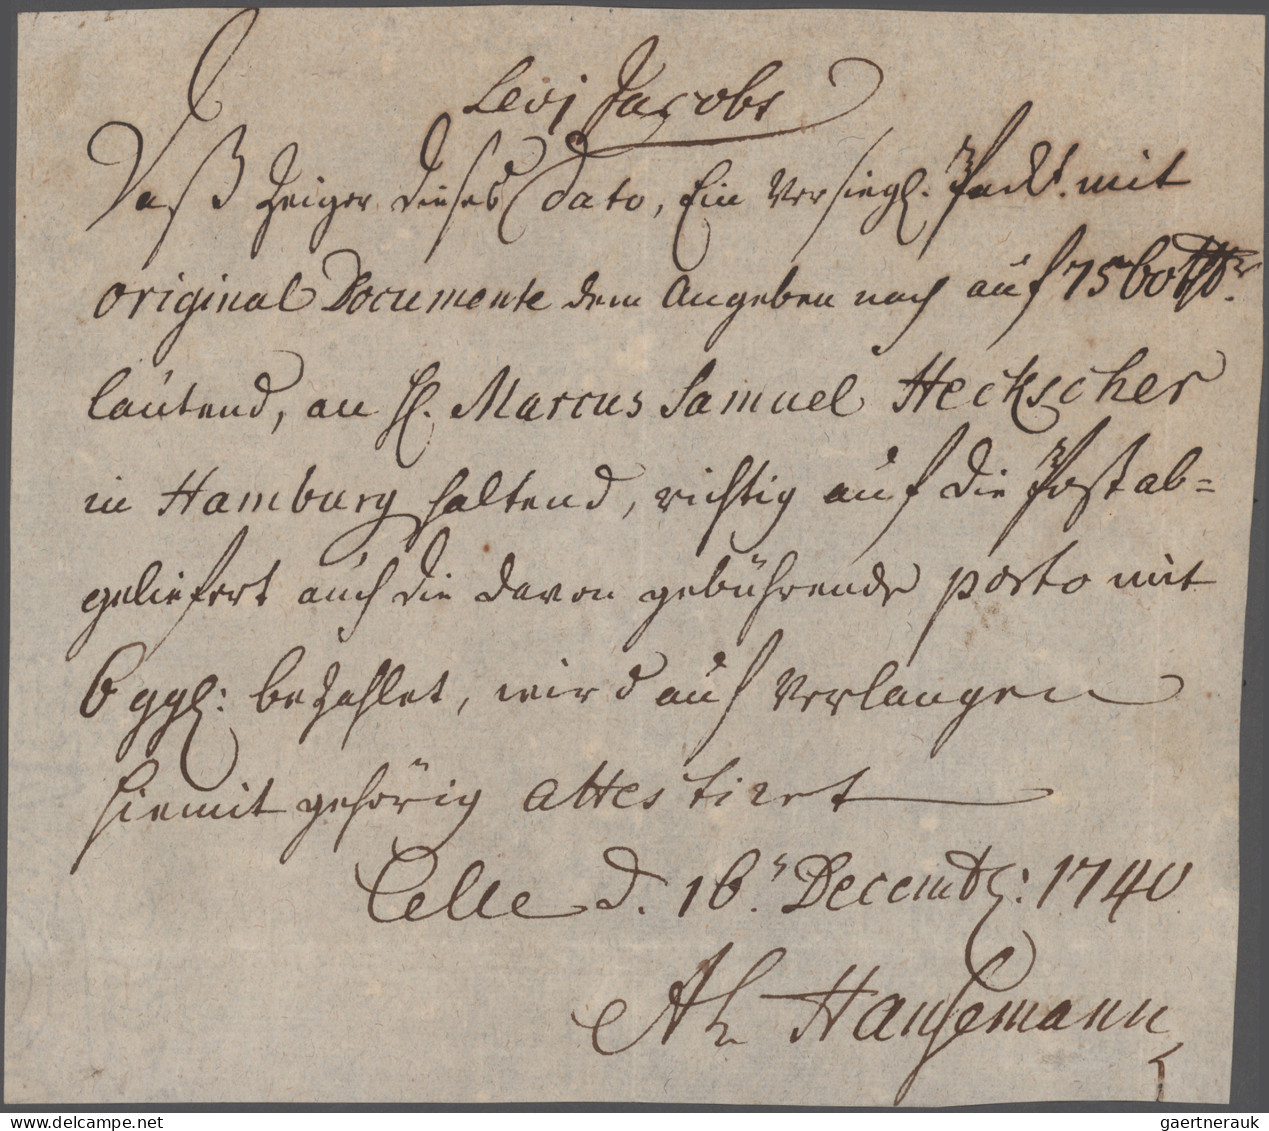 Levi Jacobs
Daß Zeiger dieses Dato, Ein Versiegl. Packt. mit
original Documente dem Angeben nach auf 7560
lautend, an H. Marcus Samuel Heckscher
in Hamburg haltend, richtig auf die Post ab=
geliefert auch die davon gebührende porto mit
6 ggl: bezahlet, wird auf Verlangen
hiemit gehörig attestiret
Celle d. 16. Decembr: 1740
Hansemann
gaertnerauk